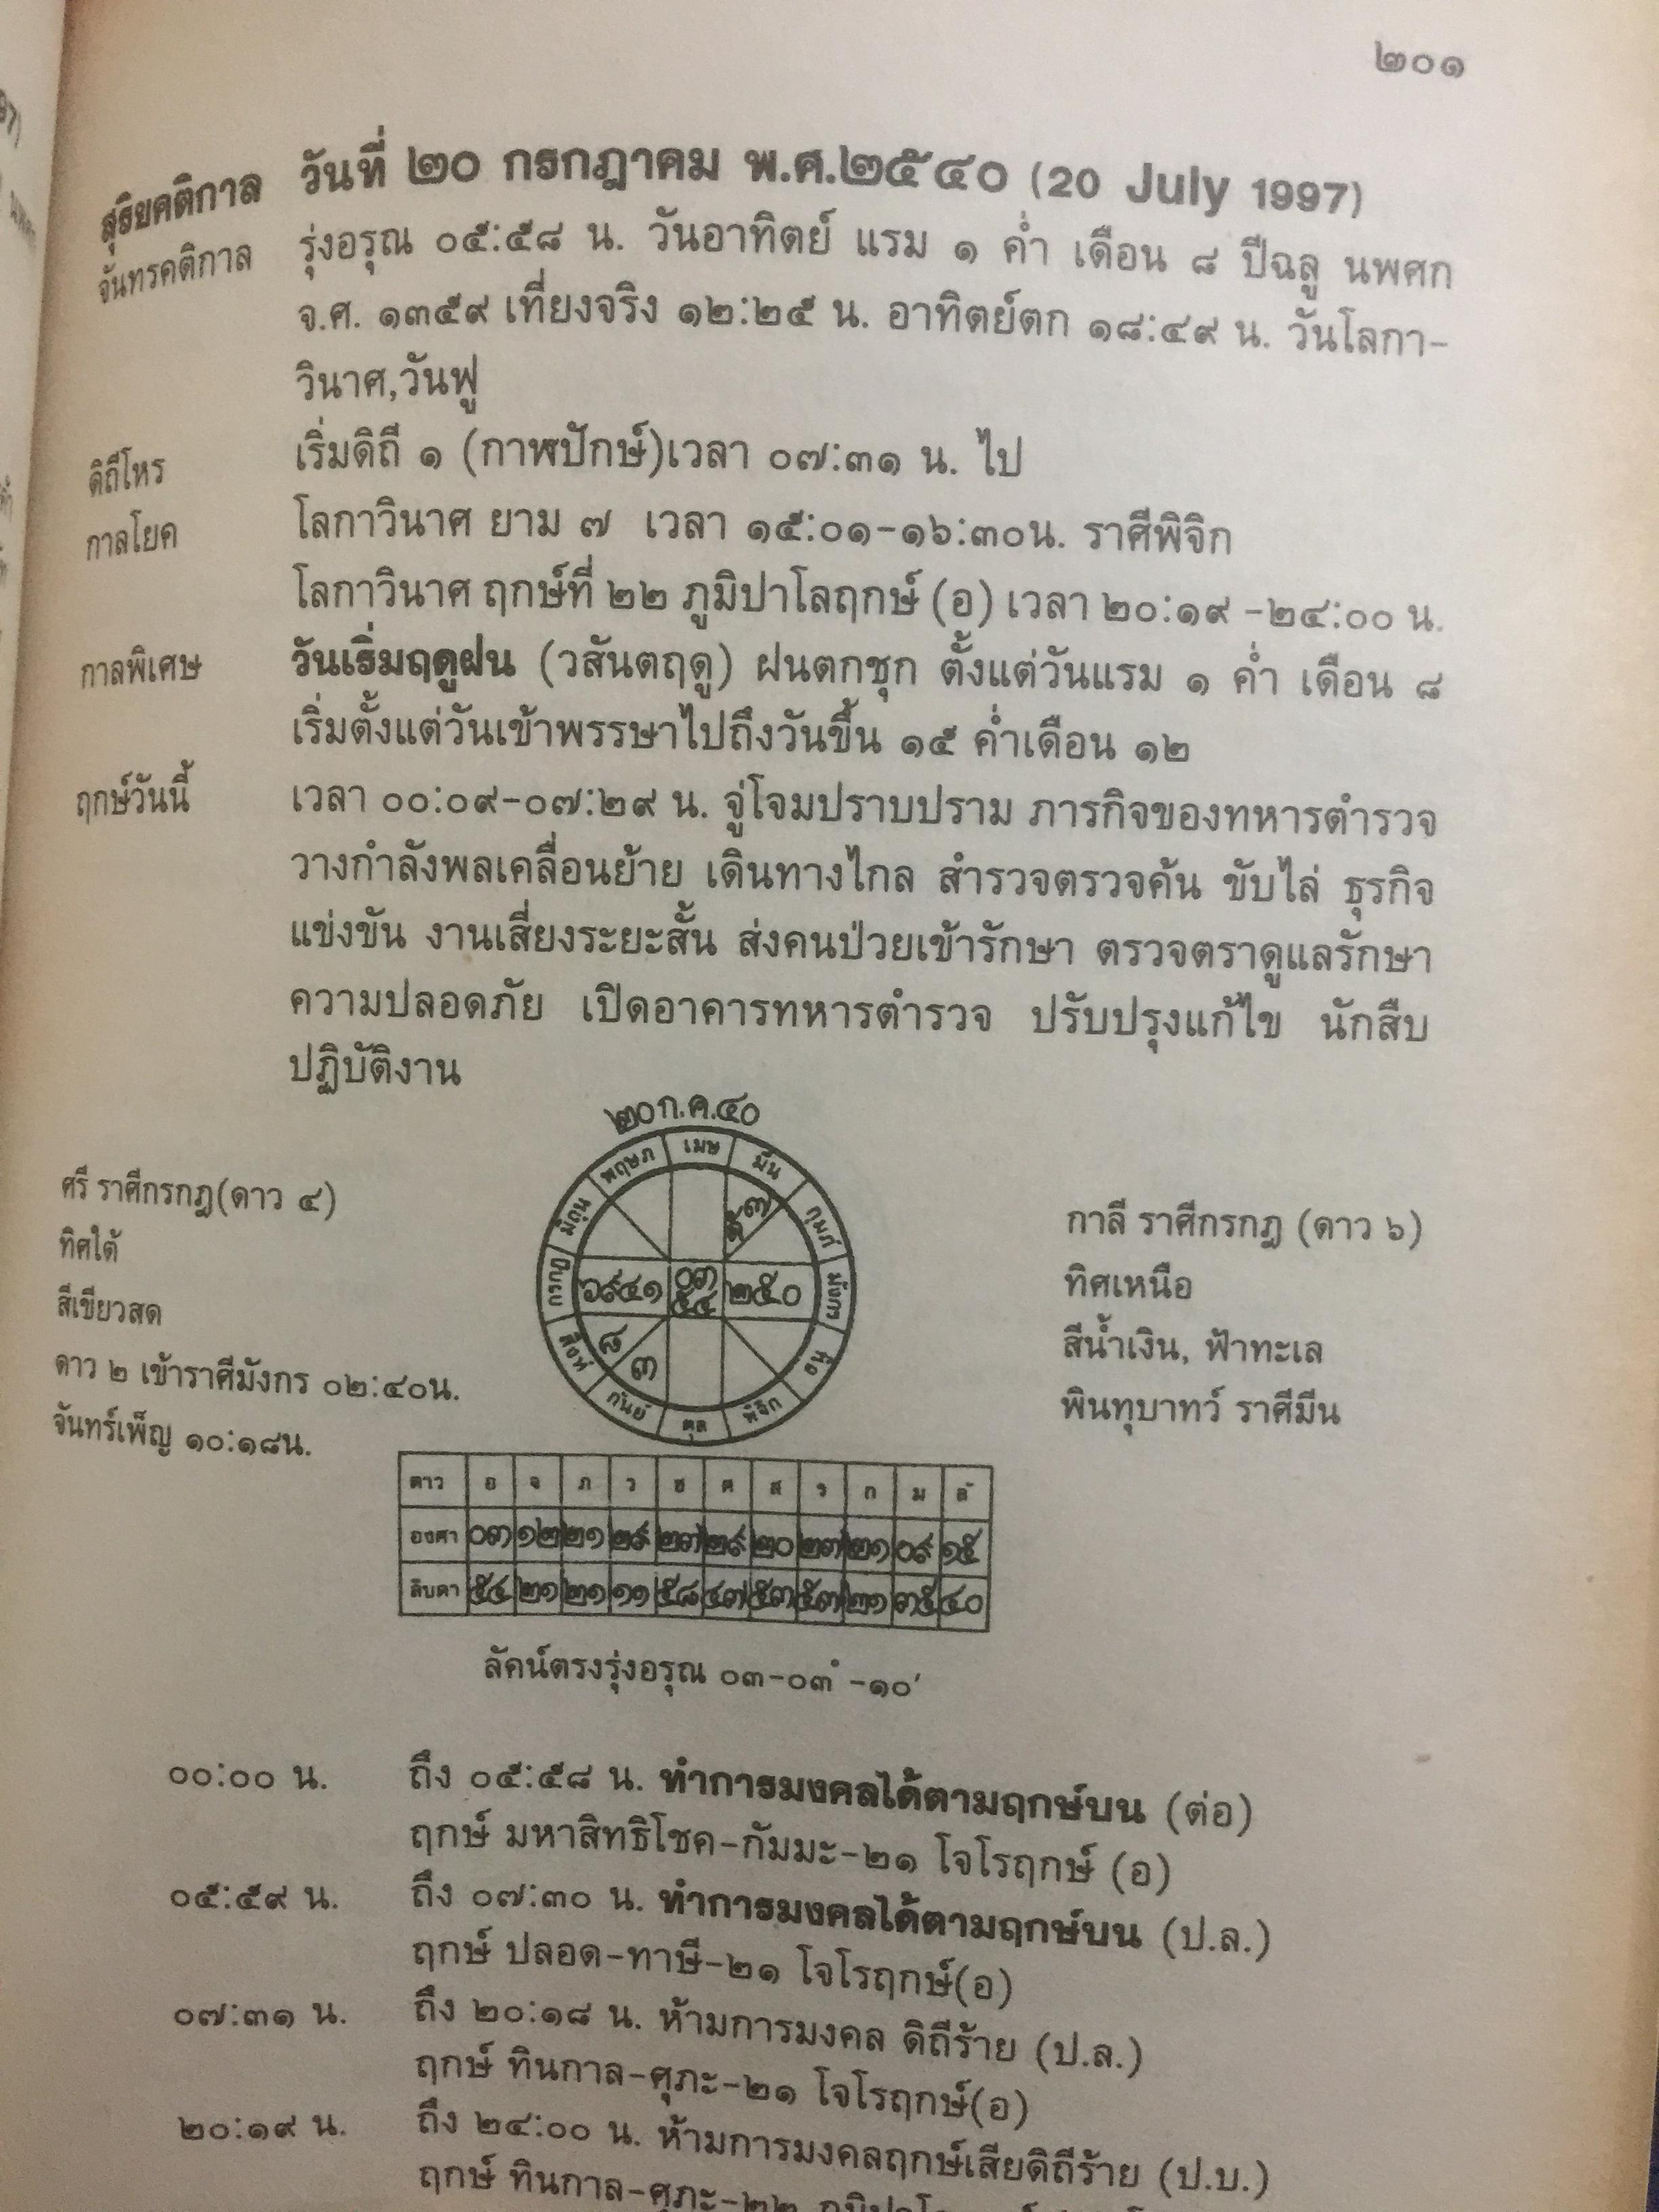 ๒๐๑
สุริยคติกาล วันที่ ๒๐ กรกฎาคม พ.ศ.๒๕๔๐ (20 July 1997)
จันทรคติกาล รุ่งอรุณ ๐๕:๕๘ น. วันอาทิตย์ แรม ๑ ค่ำ เดือน ๘ ปีฉลู นพศก
จ.ศ. ๑๓๕๙ เที่ยงจริง ๑๒:๒๕ น. อาทิตย์ตก ๑๘:๔๙ น. วันโลกา-
วินาศ,วันฟู
ดิถีโหร เริ่มดิถี ๑ (กาฬปักษ์)เวลา ๐๗:๓๑ น. ไป
กาลโยค โลกาวินาศ ยาม ๗ เวลา ๑๕:๐๑-๑๖:๓๐น. ราศีพิจิก
โลกาวินาศ ฤกษ์ที่ ๒๒ ภูมิปาโลฤกษ์ (อ) เวลา ๒๐:๑๙ -๒๔:๐๐ น.
กาลพิเศษ วันเริ่มฤดูฝน (วสันตฤดู) ฝนตกชุก ตั้งแต่วันแรม ๑ ค่ำ เดือน ๘
เริ่มตั้งแต่วันเข้าพรรษาไปถึงวันขึ้น ๑๕ ค่ำเดือน ๑๒
ฤกษ์วันนี้ เวลา ๐๐:๐๙-๐๗:๒๙ น. จู่โจมปราบปราม ภารกิจของทหารตำรวจ
วางกำลังพลเคลื่อนย้าย เดินทางไกล สำรวจตรวจค้น ขับไล่ ธุรกิจ
แข่งขัน งานเสี่ยงระยะสั้น ส่งคนป่วยเข้ารักษา ตรวจตราดูแลรักษา
ความปลอดภัย เปิดอาคารทหารตำรวจ ปรับปรุงแก้ไข นักสืบ
ปฏิบัติงาน
๒๐ ก.ค.๔๐
เมษ
พฤษภ
มีน
มิถุน
กุมภ์
๗
กรกฎ
๖๙๔๑
๐๓
๕๔
๒๕๐
มังกร
สิงห์
๘
๓
ธนู
กันย์
ตุล
พิจิก
ศรี ราศีกรกฎ(ดาว ๔)
ทิศใต้
สีเขียวสด
ดาว ๒ เข้าราศีมังกร ๐๒:๔๐น.
จันทร์เพ็ญ ๑๐:๑๘น.
กาลี ราศีกรกฎ (ดาว ๖)
ทิศเหนือ
สีน้ำเงิน, ฟ้าทะเล
พินทุบาทว์ ราศีมีน
ดาว อ จ ภ ว ช ศ ส ร ก ม ล
องศา ๐๓ ๑๒ ๒๑ ๒๙ ๒๗ ๒๙ ๒๐ ๒๗ ๒๑ ๐๙ ๑๕
ลิบดา ๕๔ ๒๑ ๒๑ ๑๑ ๕๘ ๔๗ ๕๓ ๕๗ ๒๑ ๓๕ ๔๐
ลัคน์ตรงรุ่งอรุณ ๐๓-๐๓° -๑๐′
๐๐:๐๐ น. ถึง ๐๕:๕๘ น. ทำการมงคลได้ตามฤกษ์บน (ต่อ)
ฤกษ์ มหาสิทธิโชค-กัมมะ-๒๑ โจโรฤกษ์ (อ)
๐๕:๕๙ น. ถึง ๐๗:๓๐ น. ทำการมงคลได้ตามฤกษ์บน (ป.ล.)
ฤกษ์ ปลอด-ทาษี-๒๑ โจโรฤกษ์(อ)
๐๗:๓๑ น. ถึง ๒๐:๑๘ น. ห้ามการมงคล ดิถีร้าย (ป.ล.)
ฤกษ์ ทินกาล-ศุภะ-๒๑ โจโรฤกษ์(อ)
๒๐:๑๙ น. ถึง ๒๔:๐๐ น. ห้ามการมงคลฤกษ์เสียดิถีร้าย (ป.บ.)
ฤกษ์ ทินกาล-ศุภะ-๒๒